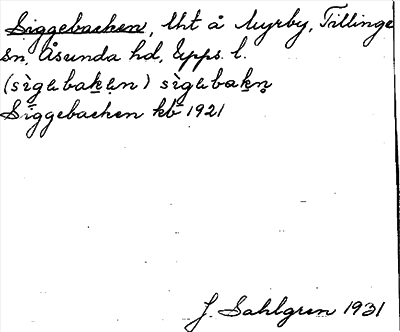 Siggebacken, lht å Myrby, Tillinge
sn, Åsunda hd, Upps. l.
(sìgɩbakɩn) sìgɩbakn̥
Siggebacken kb 1921
J. Sahlgren 1931